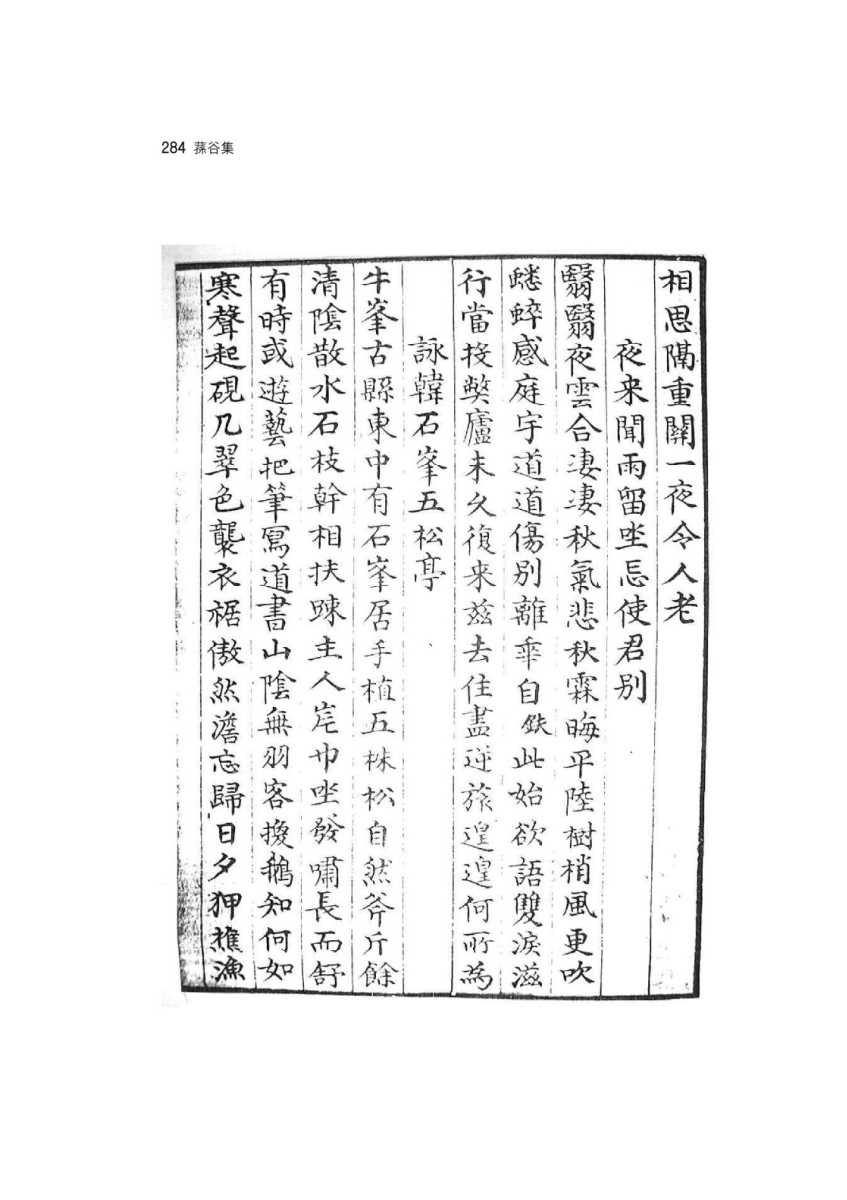 284 蓀谷集
相思隔重關一夜令人老
夜来聞雨留坐忘使君別
翳翳夜雲合凄凄秋氣悲秋霖晦平陸樹梢風更吹
蟋蟀感庭宇道道傷別離乖自鉄此始欲語雙淚滋
行當投弊廬未久復来玆去住盡逆旅遑遑何所為
詠韓石峯五松亭
牛峯古縣東中有石峯居手植五株松自然斧斤餘
清陰散水石枝幹相扶踈主人岸巾坐發嘯長而舒
有時或遊藝把筆寫道書山陰無羽客換鵝知何如
寒聲起硯几翠色襲衣裾傲然澹忘歸日夕狎樵漁